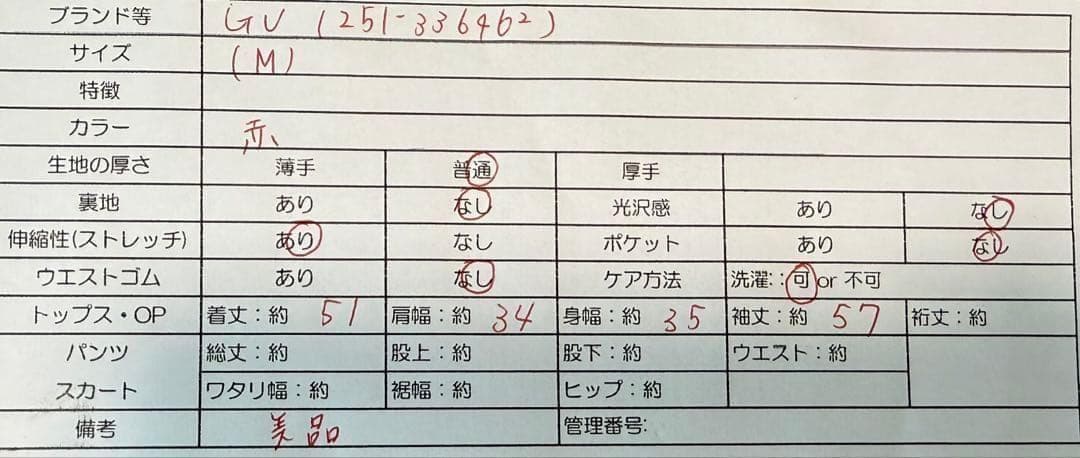 ブランド等 GU (251-336462)
サイズ (M)
特徴
カラー 赤
生地の厚さ 薄手 普通 厚手
裏地 あり なし 光沢感 あり なし
伸縮性(ストレッチ) あり なし ポケット あり なし
ウエストゴム あり なし ケア方法 洗濯: 可 or 不可
トップス・OP 着丈:約 51 肩幅:約 34 身幅:約 35 袖丈:約 57 裄丈:約
パンツ 総丈:約 股上:約 股下:約 ウエスト:約
スカート ワタリ幅:約 裾幅:約 ヒップ:約
備考 美品 管理番号: